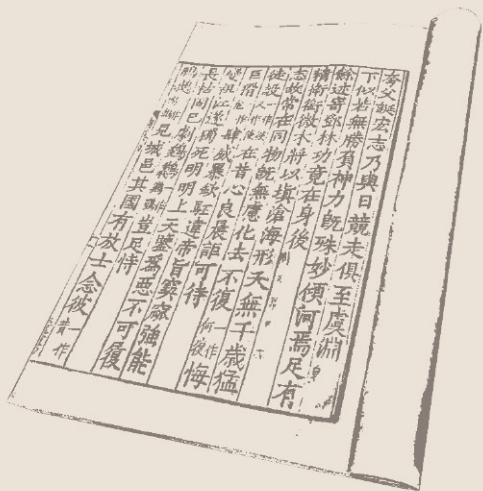 夸父誕宏志乃與日競走俱至虞淵
下似若無勝負神力旣殊妙傾河焉足有
餘迹寄鄧林功竟在身後
精衛銜微木將以填滄海形夭無千歲猛
志故常在同物旣無慮化去不復一作何復悔
徒設一作在昔心良晨詎可待
巨猾肆威暴欽駓違帝旨窫窳強能
變祖江遂獨死明明上天鑒爲惡不可履
長枯固已劇鵕鶚豈足恃
見城邑其國有放士念彼一作